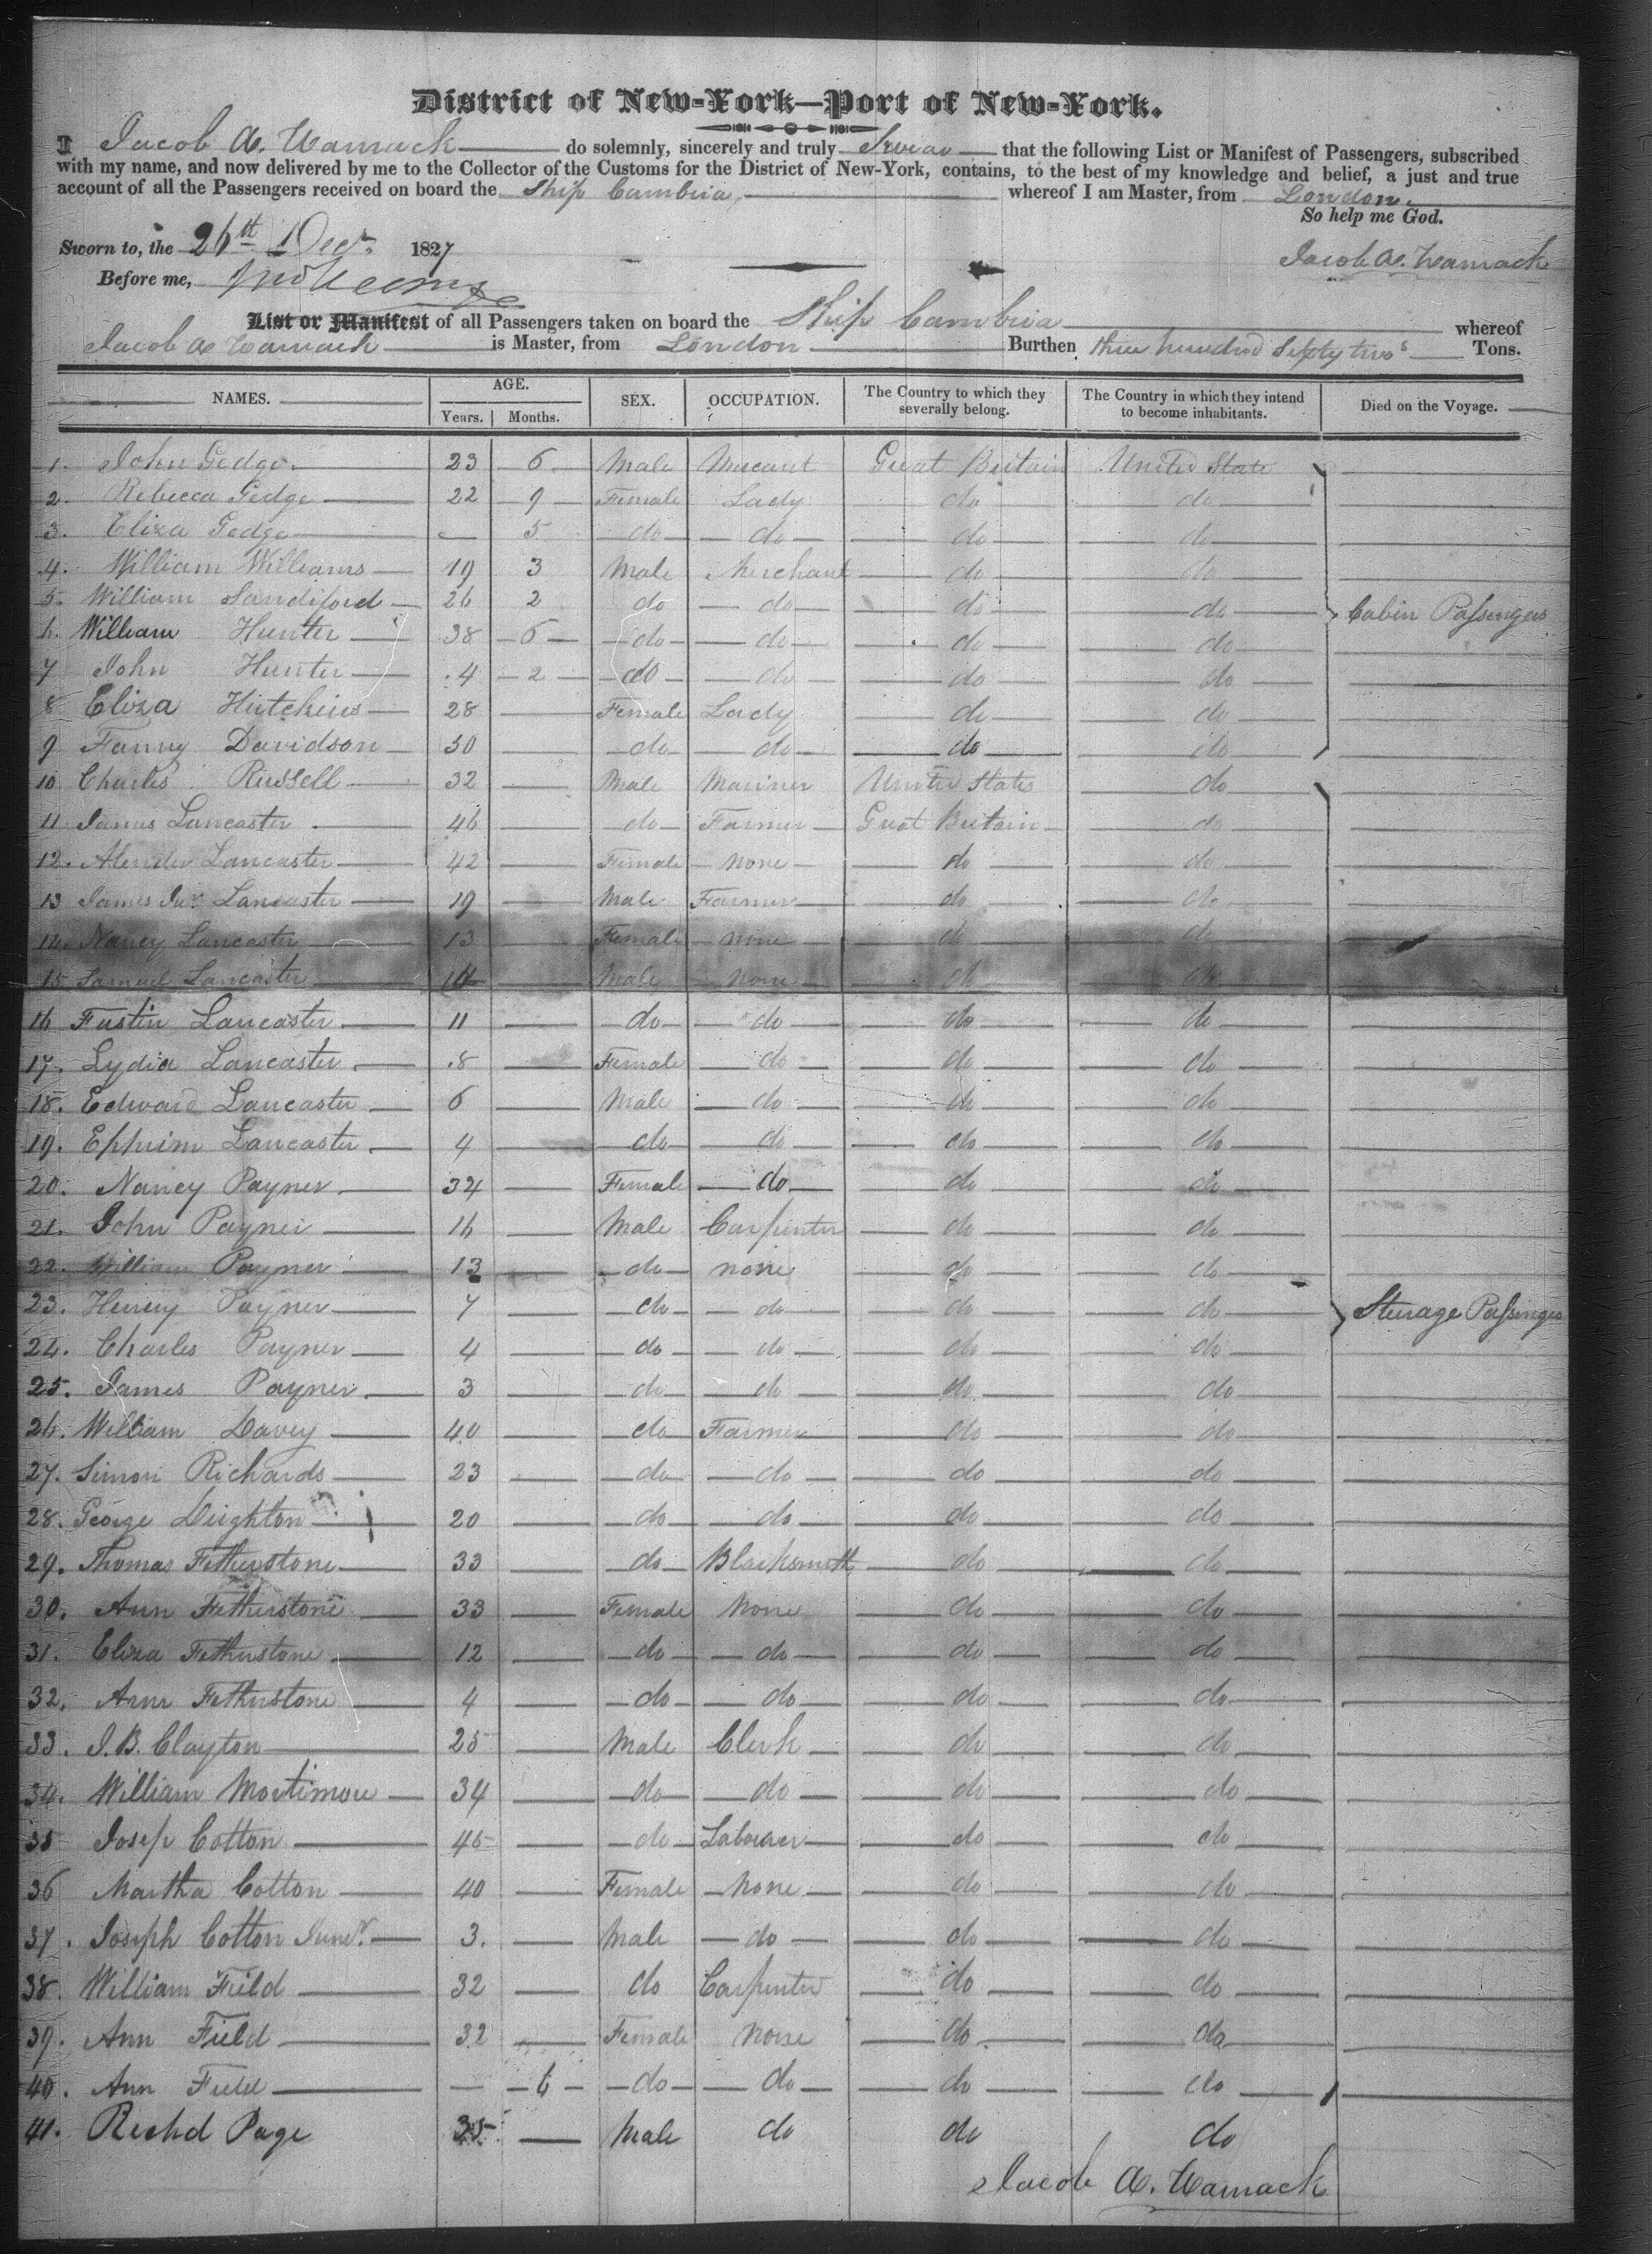 District of New-York—Port of New-York.
I Jacob A. Wamack do solemnly, sincerely and truly Swear that the following List or Manifest of Passengers, subscribed
with my name, and now delivered by me to the Collector of the Customs for the District of New-York, contains, to the best of my knowledge and belief, a just and true
account of all the Passengers received on board the Ship Cambria, whereof I am Master, from London.
So help me God.
Sworn to, the 26th Decr. 1827
Jacob A. Wamack
Before me,
List or Manifest of all Passengers taken on board the Ship Cambria whereof
Jacob A Wamack is Master, from London Burthen three hundred Sixty two Tons.
NAMES. AGE. Years. Months. SEX. OCCUPATION. The Country to which they severally belong. The Country in which they intend to become inhabitants. Died on the Voyage.
1. John Gedge 23 6 Male Great Britain United State
2. Rebecca Gedge 22 9 Female Lady do do
3. Eliza Gedge — 5 do do do do
4. William Williams 19 3 Male Merchant do do
5. William Sandiford 26 2 do do do do Cabin Passengers
6. William Hunter 38 6 do do do do
7 John Hunter 4 2 do do do do
8 Eliza Hutchins 28 Female Lady do do
9 Fanny Davidson 30 do do do do
10 Charles Russell 32 Male Mariner United States do
11 James Lancaster 46 do Farmer Great Britain do
12. Lancaster 42 Female none do do
13 James Junr. Lancaster 19 Male Farmer do do
14. Nancy Lancaster 13 Female none do do
15 Samuel Lancaster Male none do do
16 Fustin Lancaster 11 do do do do
17. Lydia Lancaster 8 Female do do do
18. Edward Lancaster 6 Male do do do
19. Ephrim Lancaster 4 do do do do
20. Nancy Payner 34 Female do do do
21. John Payner 16 Male Carpenter do do
22. William Payner 13 do none do do
23. Henry Payner 7 do do do do Sterage Passinges
24. Charles Payner 4 do do do do
25. James Payner 3 do do do do
26. William Davey 40 do Farmer do do
27. Simon Richards 23 do do do do
28. George Dighton 20 do do do do
29. Thomas Fetherstone 33 do Blacksmith do do
30. Ann Fetherstone 33 Female None do do
31. Eliza Fetherstone 12 do do do do
32. Ann Fetherstone 4 do do do do
33. J. B. Clayton 25 Male Clerk do do
34. William Mortimore 34 do do do do
35 Josep Cotton 45 do Labourer do do
36 Martha Cotton 40 Female None do do
37. Joseph Cotton Junr. 3. Male do do do
38. William Field 32 do Carpenter do do
39. Ann Field 32 Female none do do
40. Ann Field — 6 do do do do
41. Richd Page 35 Male do do do
Jacob A. Wamack